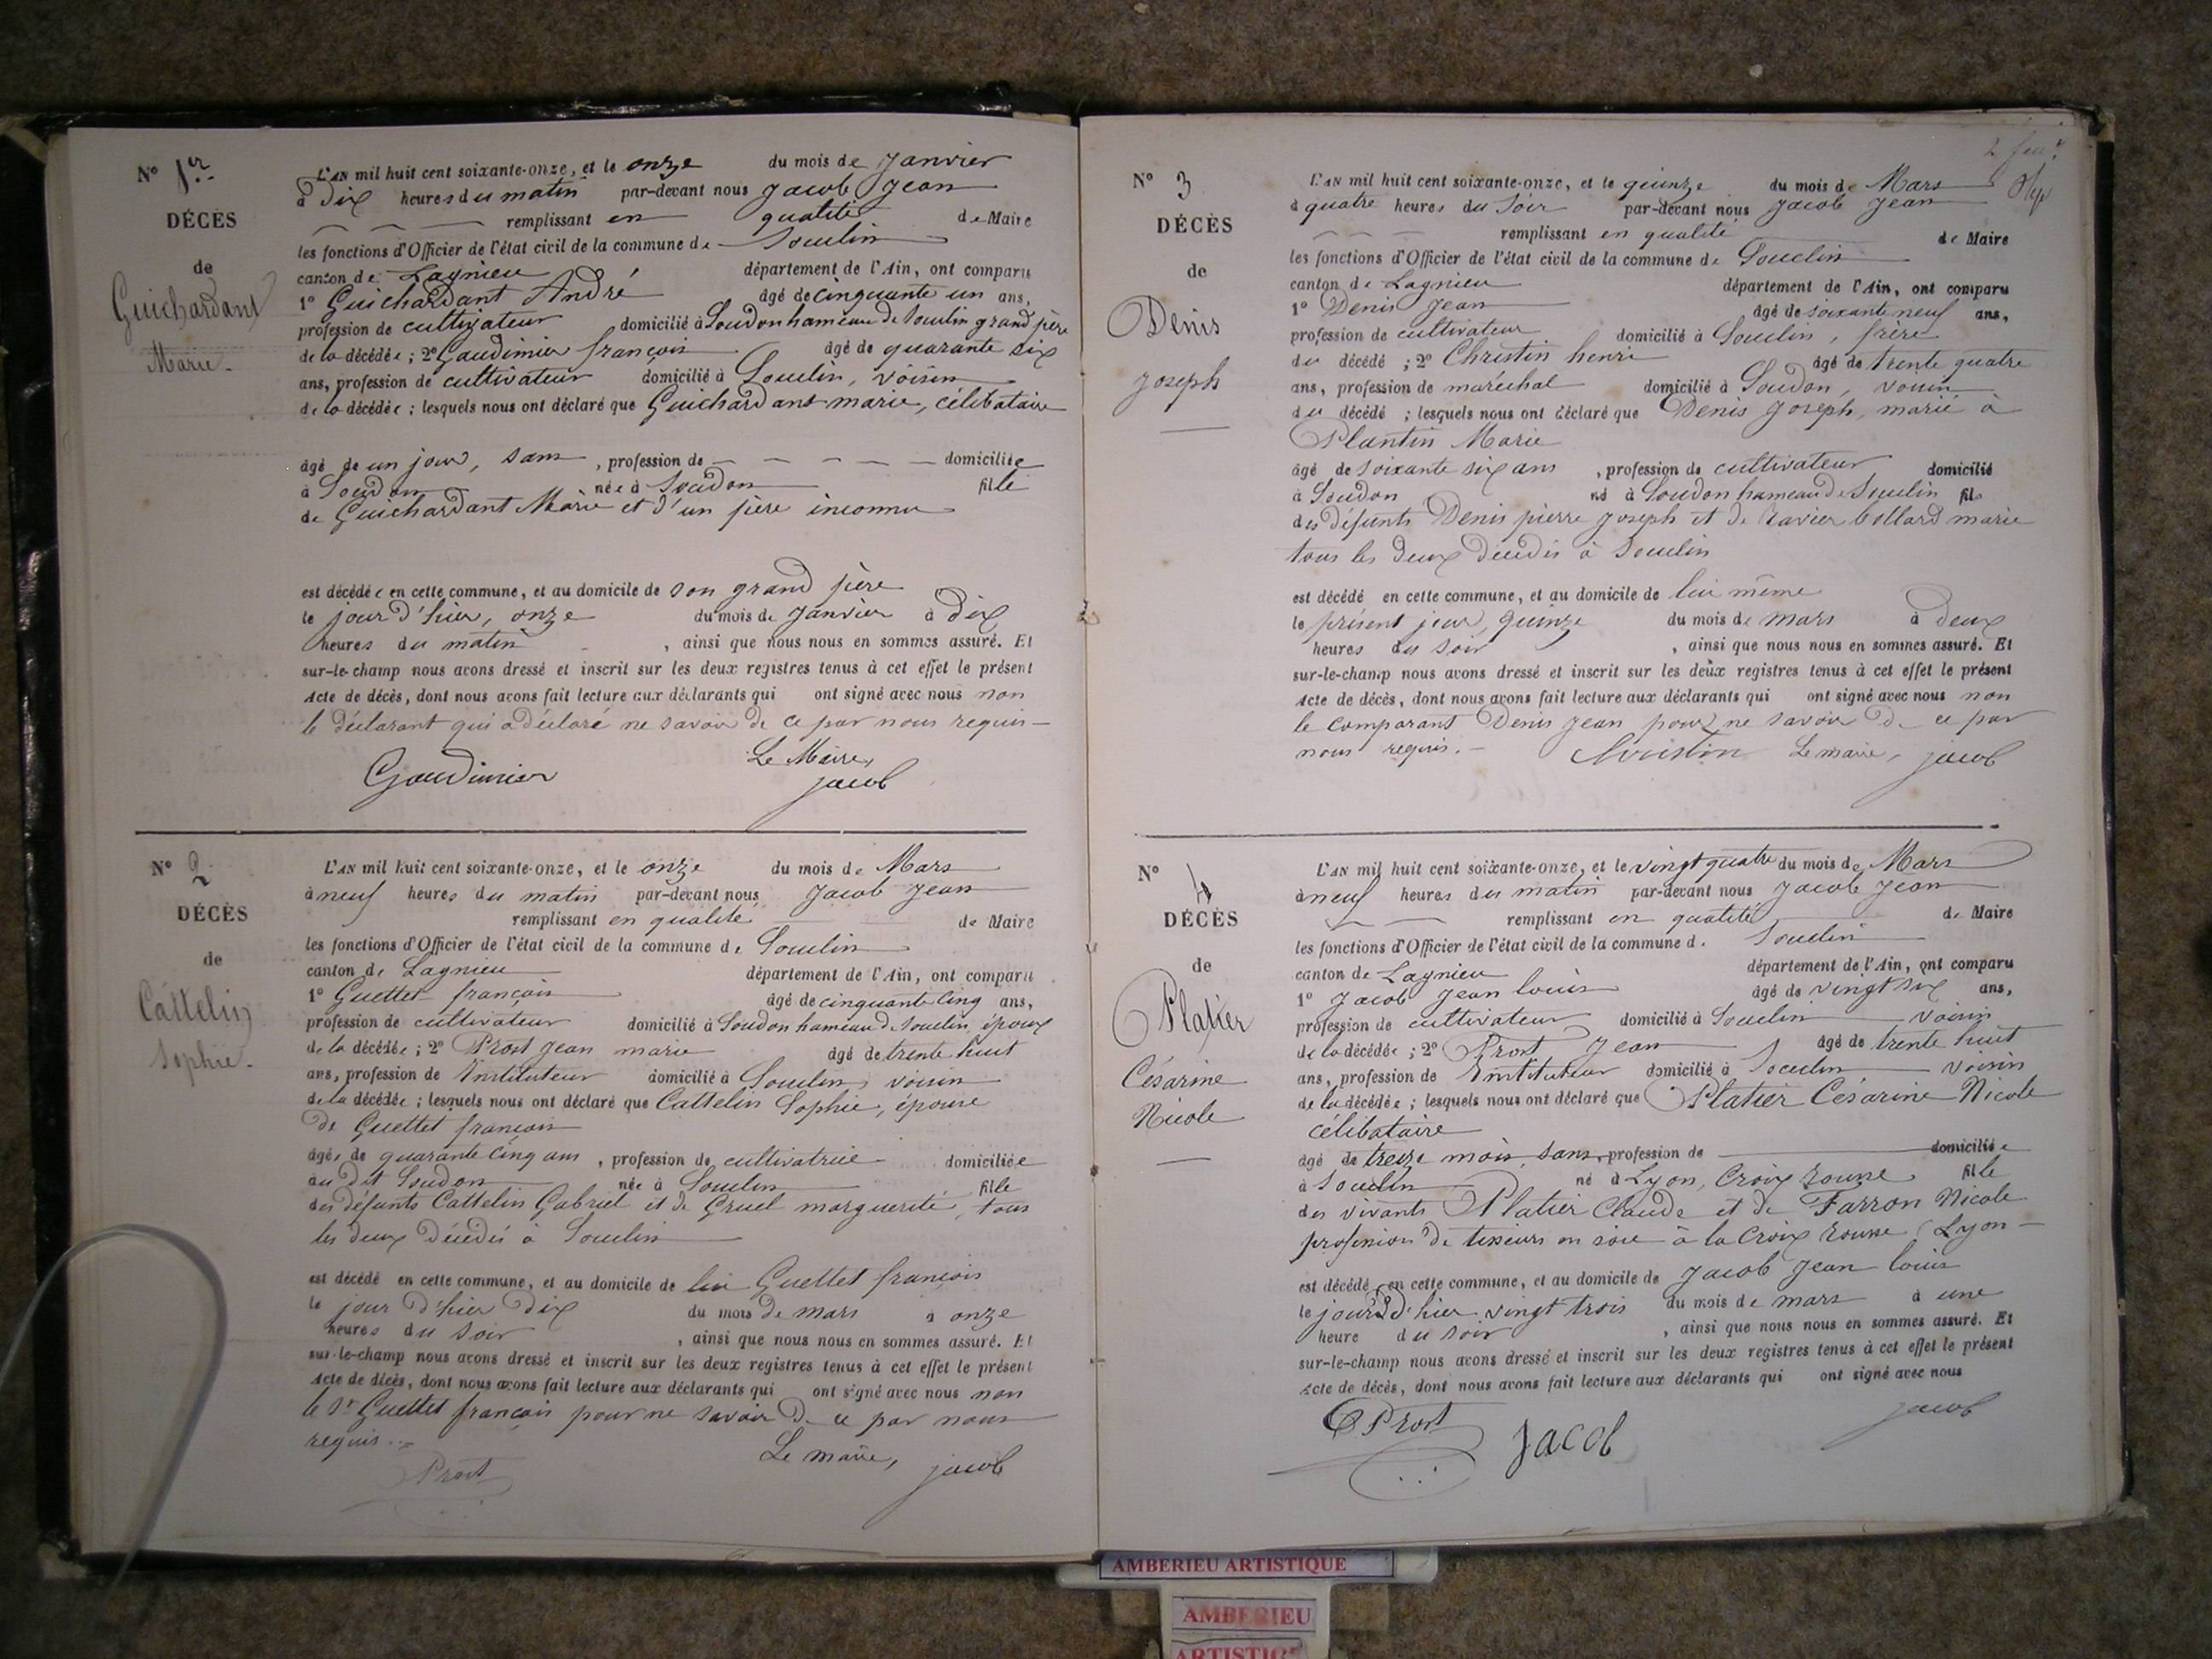 N° 1er
DÉCÈS
de
Guichardant
Marie.
L'AN mil huit cent soixante-onze, et le onze du mois de Janvier
à Dix heures du matin par-devant nous Jacob Jean
remplissant en qualité de Maire
les fonctions d'Officier de l'état civil de la commune de Souclin
canton de Lagnieu département de l'Ain, ont comparu
1° Guichardant André âgé de cinquante un ans,
profession de cultivateur domicilié à Soudon hameau de Souclin grand père
de la décédée ; 2° Gaudimier françois âgé de quarante six
ans, profession de cultivateur domicilié à Souclin, voisin
de la décédée ; lesquels nous ont déclaré que Guichardant marie, célibataire
âgé de un jour, sans , profession de domiciliée
à Soudon née à Soudon fille
de Guichardant Marie et d'un père inconnu
est décédée en cette commune, et au domicile de son grand père
le jour d'hier, onze du mois de Janvier à Dix
heures du matin , ainsi que nous nous en sommes assuré. Et
sur-le-champ nous avons dressé et inscrit sur les deux registres tenus à cet effet le présent
Acte de décès, dont nous avons fait lecture aux déclarants qui ont signé avec nous non
le déclarant qui a déclaré ne savoir de ce par nous requis
Gaudimier Le Maire, Jacob
N° 2
DÉCÈS
de
Cattelin
Sophie.
L'AN mil huit cent soixante-onze, et le onze du mois de Mars
à neuf heures du matin par-devant nous Jacob Jean
remplissant en qualité de Maire
les fonctions d'Officier de l'état civil de la commune de Souclin
canton de Lagnieu département de l'Ain, ont comparu
1° Guettet françois âgé de cinquante cinq ans,
profession de cultivateur domicilié à Soudon hameau de Souclin époux
de la décédée ; 2° Prost Jean marie âgé de trente huit
ans, profession de Instituteur domicilié à Souclin, voisin
de la décédée ; lesquels nous ont déclaré que Cattelin Sophie, épouse
De Guettet françois
âgée de quarante cinq ans , profession de cultivatrice domiciliée
au dit Soudon née à Souclin fille
des défunts Cattelin Gabriel et de Gruel marguerite, tous
les deux Décédés à Souclin
est décédé en cette commune, et au domicile de lui Guettet françois
le jour d'hier Dix du mois de mars à onze
heures du soir , ainsi que nous nous en sommes assuré. Et
sur-le-champ nous avons dressé et inscrit sur les deux registres tenus à cet effet le présent
Acte de décès, dont nous avons fait lecture aux déclarants qui ont signé avec nous non
le Sr Guettet françois pour ne savoir de ce par nous
requis.
Prost Le maire, Jacob
N° 3
DÉCÈS
de
Denis
Joseph
L'AN mil huit cent soixante-onze, et le quinze du mois de Mars
à quatre heures du Soir par-devant nous Jacob Jean
remplissant en qualité de Maire
les fonctions d'Officier de l'état civil de la commune de Souclin
canton de Lagnieu département de l'Ain, ont comparu
1° Denis Jean âgé de soixante neuf ans,
profession de cultivateur domicilié à Souclin, frère
du décédé ; 2° Christin henri âgé de trente quatre
ans, profession de maréchal domicilié à Soudon, voisin
du décédé ; lesquels nous ont déclaré que Denis Joseph, marié à
Plantin Marie
âgé de soixante six ans , profession de cultivateur domicilié
à Soudon né à Soudon hameau de Souclin fils
des défunts Denis pierre Joseph et de Ravier Collard marie
tous les deux Décédés à Souclin
est décédé en cette commune, et au domicile de lui même
le présent jour, quinze du mois de mars à deux
heures du soir , ainsi que nous nous en sommes assuré. Et
sur-le-champ nous avons dressé et inscrit sur les deux registres tenus à cet effet le présent
Acte de décès, dont nous avons fait lecture aux déclarants qui ont signé avec nous non
le comparant Denis Jean pour ne savoir de ce par
nous requis. Christin Le maire, Jacob
N° 4
DÉCÈS
de
Platier
Césarine
Nicole
L'AN mil huit cent soixante-onze, et le vingt quatre du mois de Mars
à neuf heures du matin par-devant nous Jacob Jean
remplissant en qualité de Maire
les fonctions d'Officier de l'état civil de la commune de Souclin
canton de Lagnieu département de l'Ain, ont comparu
1° Jacob Jean louis âgé de vingt six ans,
profession de cultivateur domicilié à Souclin voisin
de la décédée ; 2° Prost Jean âgé de trente huit
ans, profession de Instituteur domicilié à Souclin voisin
de la décédée ; lesquels nous ont déclaré que Platier Césarine Nicole
célibataire
âgé de treize mois, sans, profession de domiciliée
à Souclin né à Lyon, Croix rousse fille
des vivants Platier Claude et de Farron Nicole
profession de tisseurs en soie à la Croix rousse (Lyon
est décédé en cette commune, et au domicile de Jacob Jean louis
le jour d'hier vingt trois du mois de mars à une
heure du soir , ainsi que nous nous en sommes assuré. Et
sur-le-champ nous avons dressé et inscrit sur les deux registres tenus à cet effet le présent
Acte de décès, dont nous avons fait lecture aux déclarants qui ont signé avec nous
Prost Jacob Jacob
AMBERIEU ARTISTIQUE
AMBERIEU
ARTISTIQUE